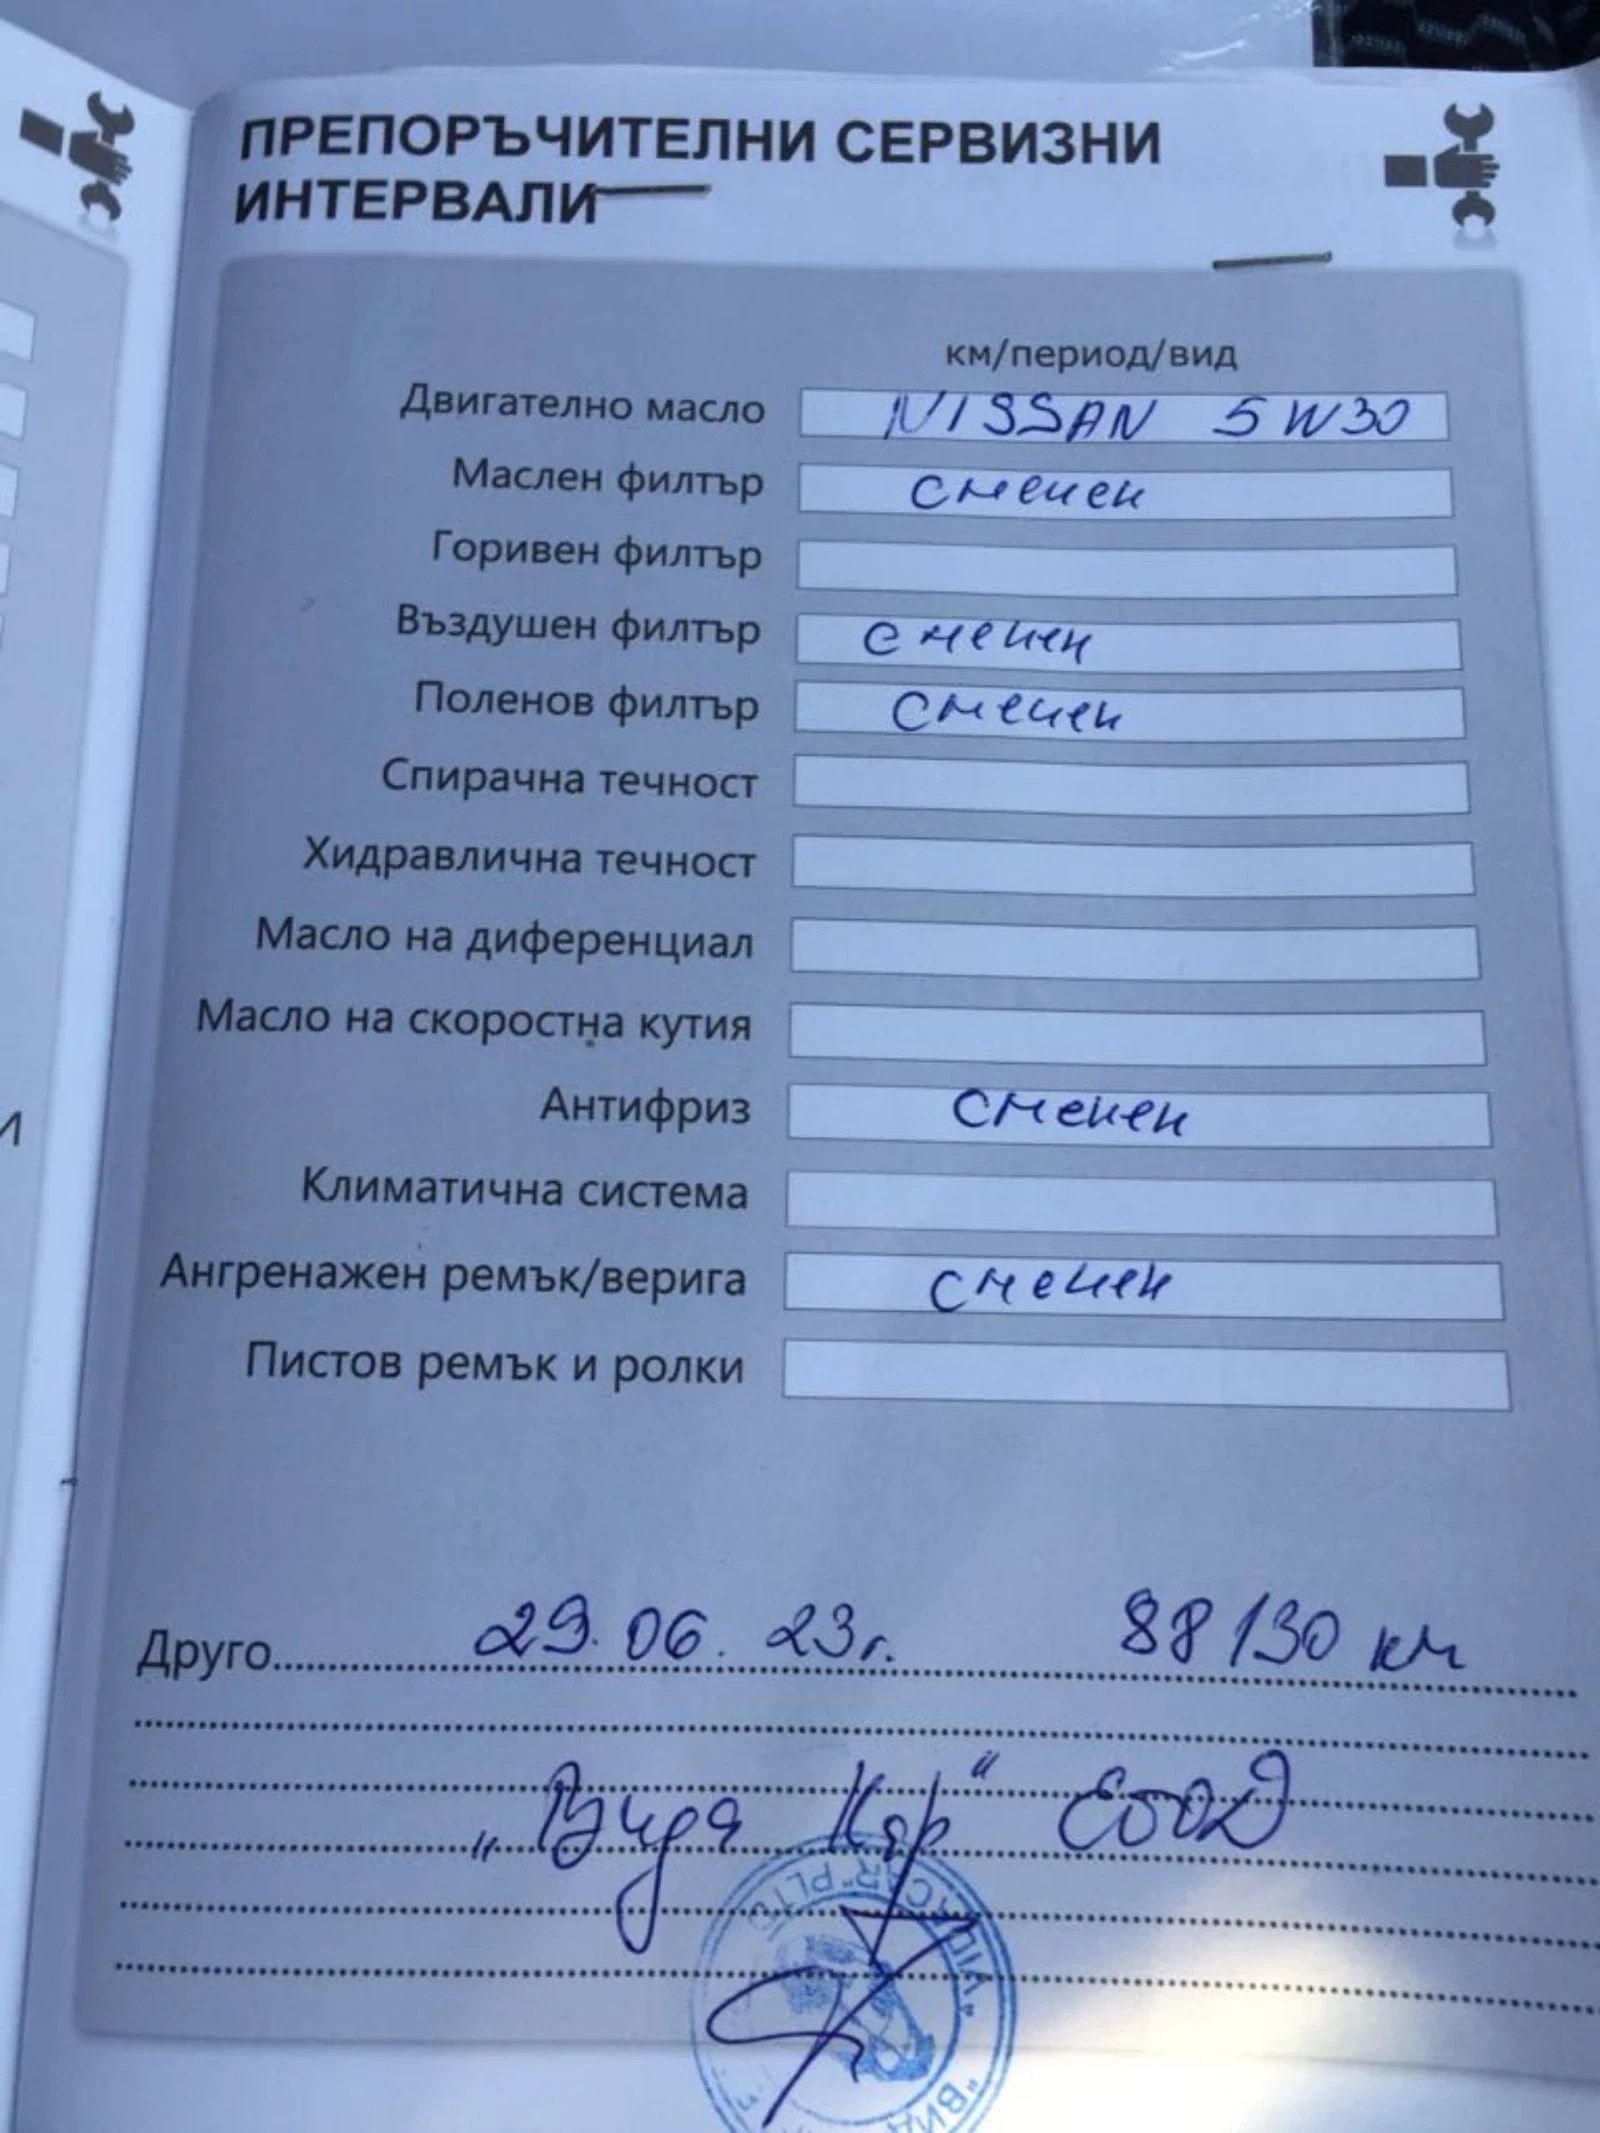 ПРЕПОРЪЧИТЕЛНИ СЕРВИЗНИ
ИНТЕРВАЛИ
км/период/вид
Двигателно масло NISSAN 5W30
Маслен филтър сменен
Горивен филтър
Въздушен филтър сменен
Поленов филтър сменен
Спирачна течност
Хидравлична течност
Масло на диференциал
Масло на скоростна кутия
Антифриз сменен
Климатична система
Ангренажен ремък/верига сменен
Пистов ремък и ролки
И
Друго 29.06.23г. 88130 км
„Вида Кар" ЕООД
"VIDA CAR" PLTD